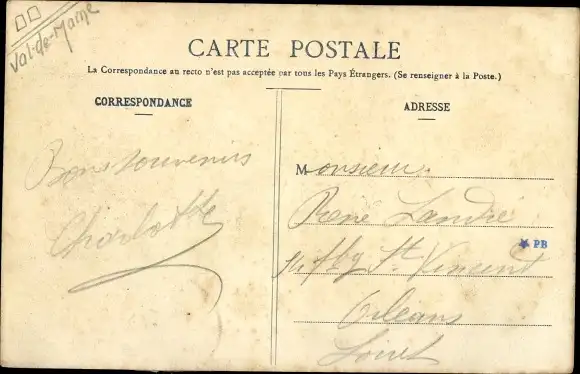 Val-de-Marne
CARTE POSTALE
La Correspondance au recto n'est pas acceptée par tous les Pays Étrangers. (Se renseigner à la Poste.)
CORRESPONDANCE
Bons souvenirs
Charlotte
ADRESSE
Monsieur
René Landré
fbg St Vincent
PB
Orléans
Loiret